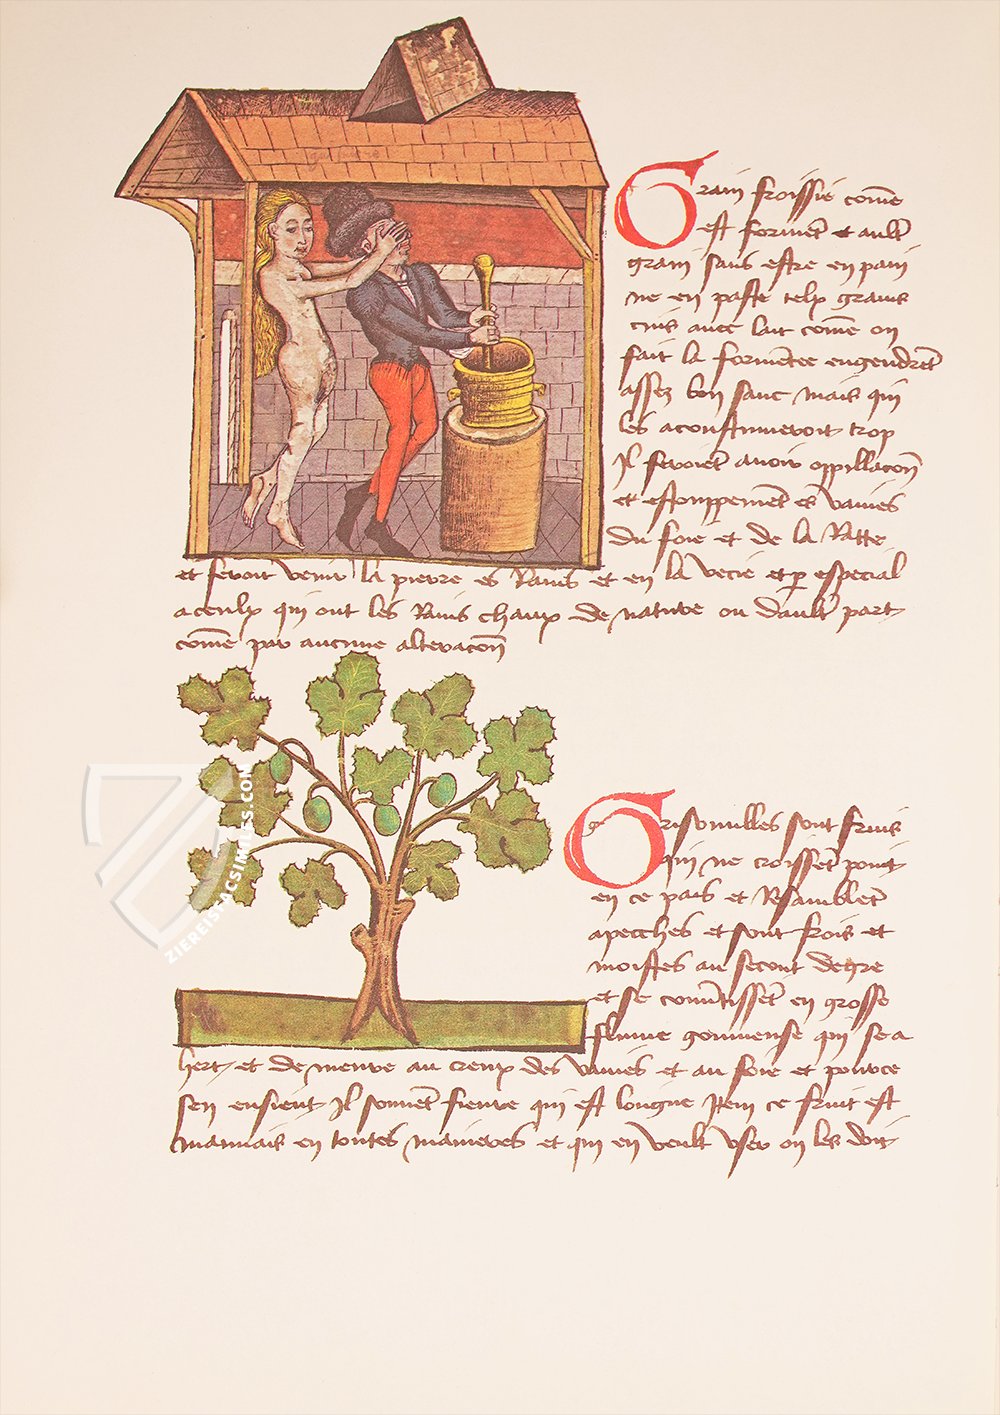 Grain froissie com̄e
est forment et ault̄
grain sans estre en pain
ne en paste telx grains
cuis auec lait com̄e on
fait la formentee engendrent
assez bon sanc mais qui
les acoustumeroit trop
Il feroient auoir oppillacōn
et estouppement es vaines
du foie et de la Ratte
et feroit venir la pierre es Rains et en la vecie et p̄ especial
a ceulx qui ont les Rains chaux de nature ou dault̄ part
com̄e par aucune alteracōn
Grisomilles sont fruis
qui ne croissent point
en ce pais et Resamblent
apecches et sont frois et
moistes au second degre
et se conūtissent en grosse
flume
qui se a
hert et de meure au creux des vaines et au foie et pource
sen ensient Il sonnent fieure qui est longue Item ce fruit est
mauuais en toutes manieres et qui en veult vser on les doit
ZIEREISFACSIMILES.COM